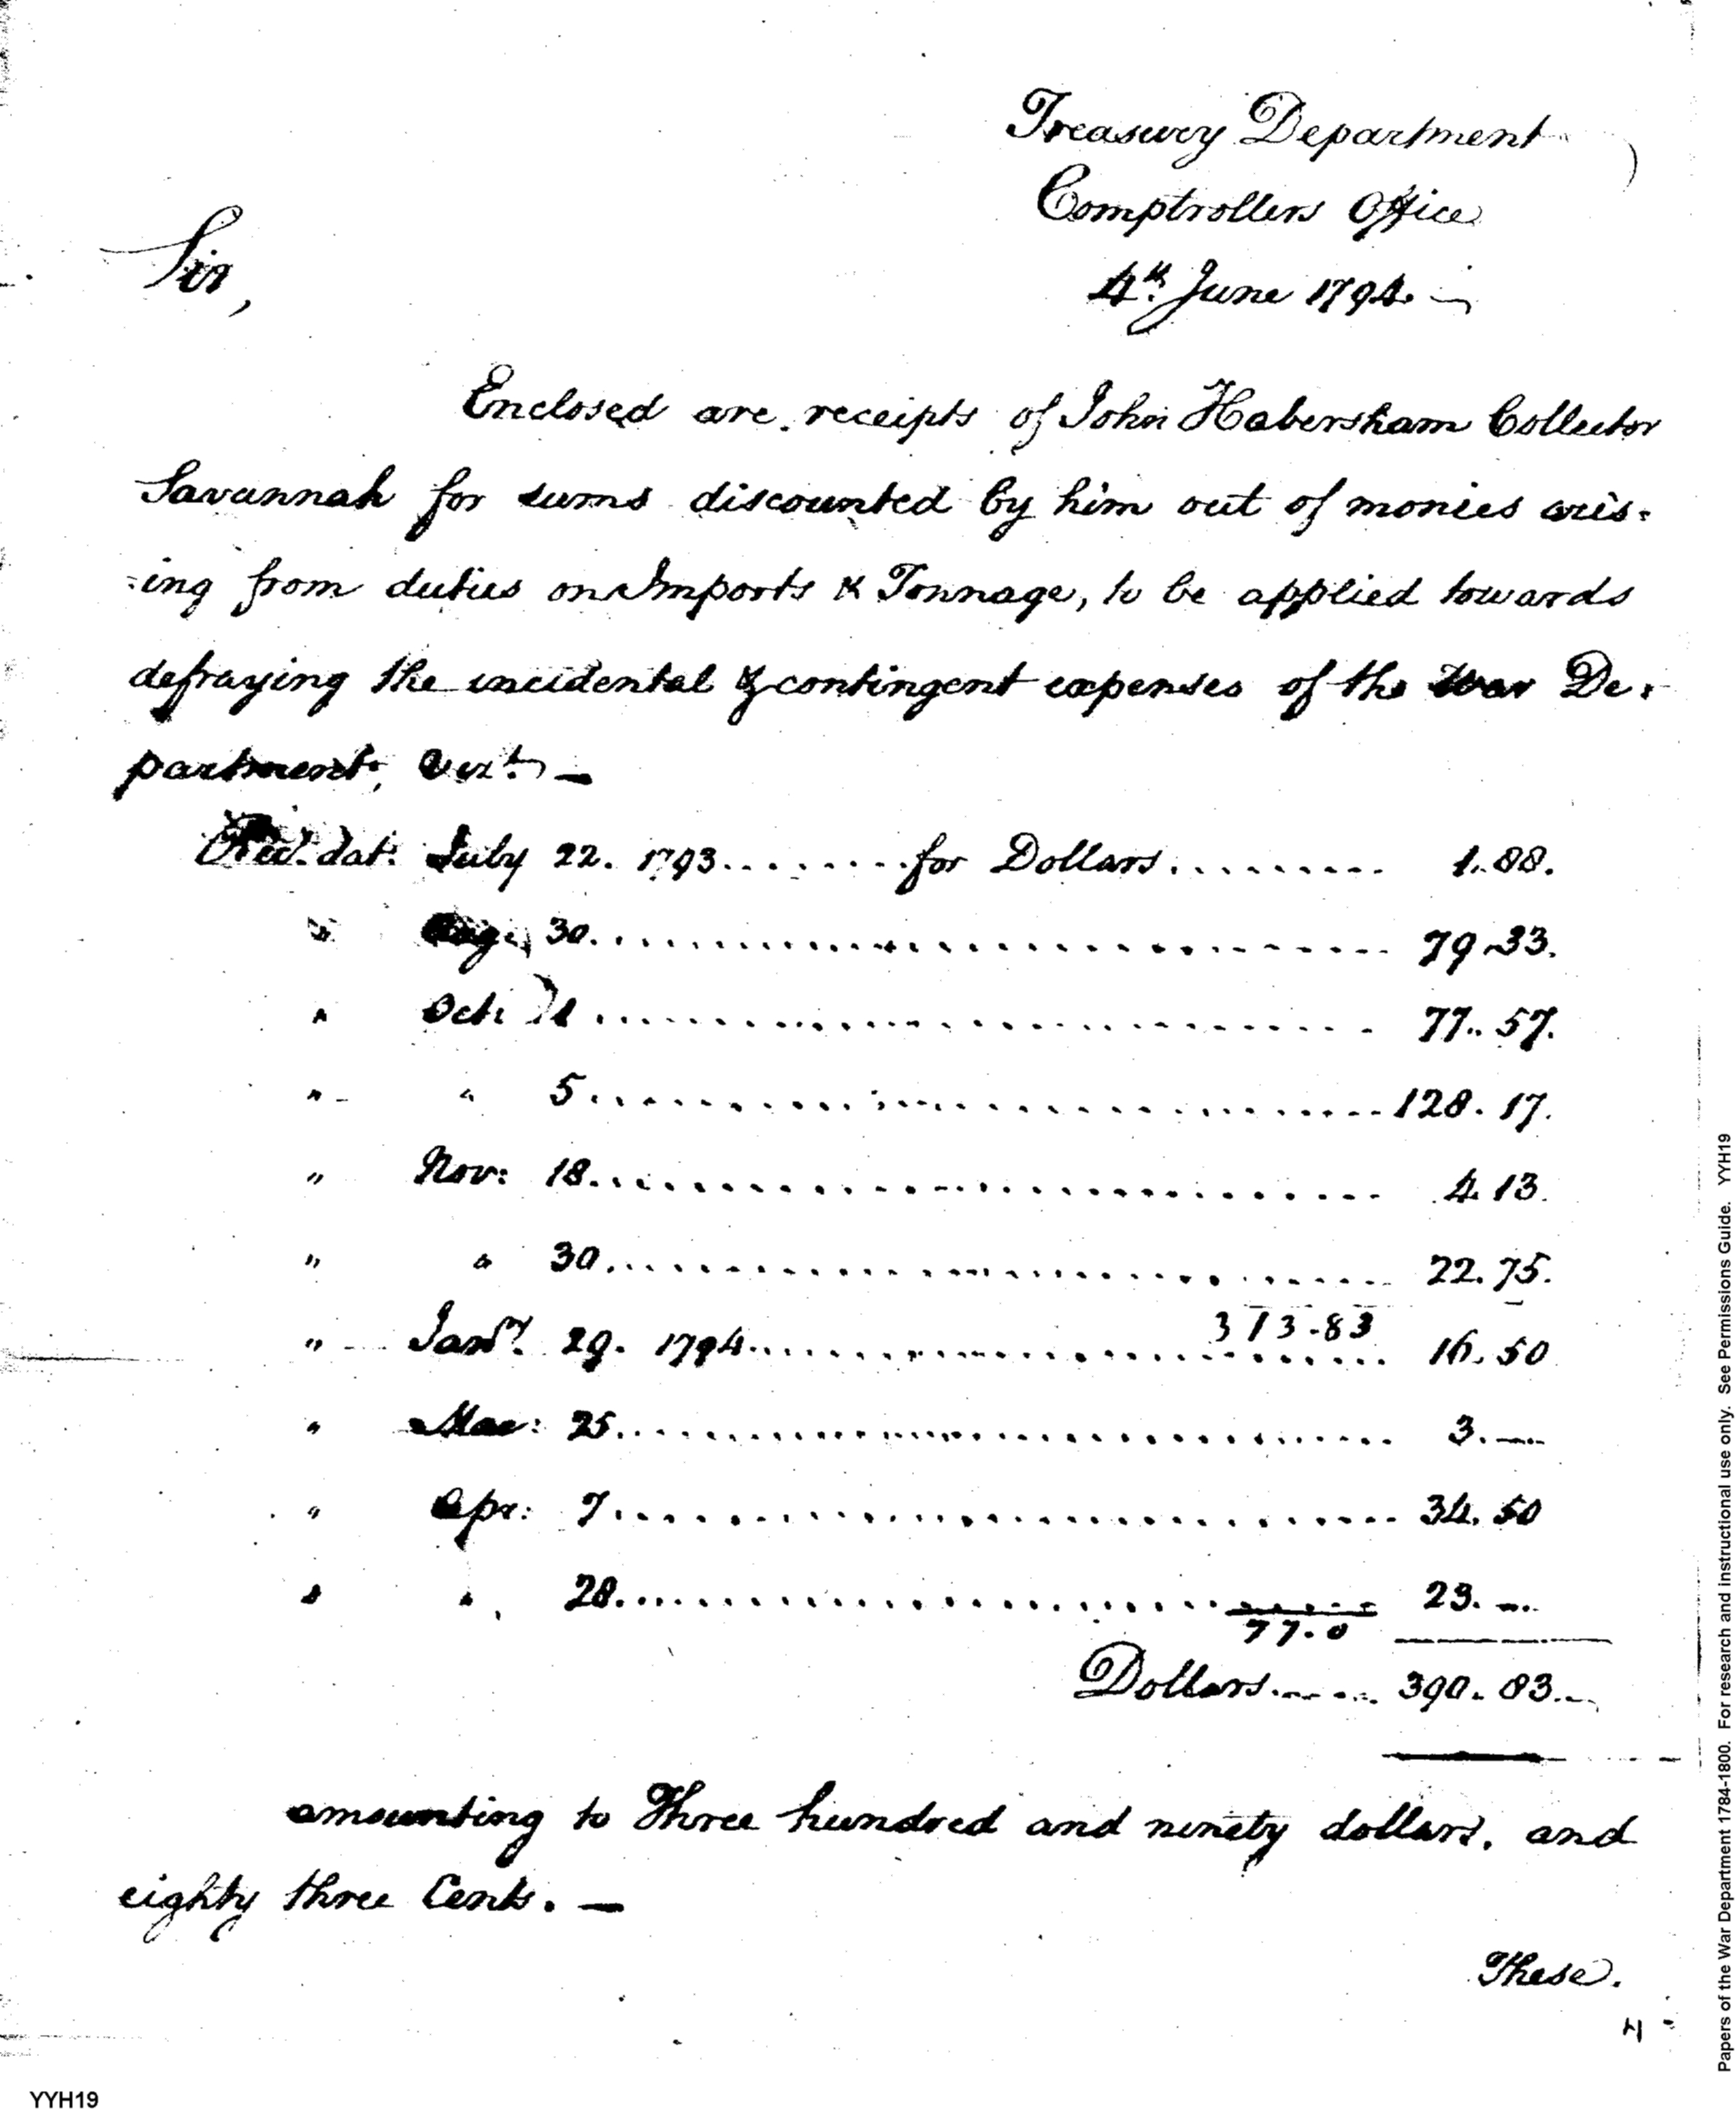 Treasury Department
Comptrollers Office
4th. June 1794.
Sir,
Enclosed are receipts of John Habersham Collector
Savannah for sums discounted by him out of monies aris-
-ing from duties on Imports & Tonnage, to be applied towards
defraying the incidental & contingent expenses of the War De-
partment, Vizt. —
dat: July 22. 1793........for Dollars......... 1.88.
" Aug: 30............................. 79.33.
" Oct: 1............................. 77.57.
" " 5............................. 128.17.
" Nov: 18............................. 4.13.
" " 30............................. 22.75.
313-83
" Jany. 29. 1794............................. 16.50
" Mar: 25............................. 3.—
" Apr: 7............................. 34.50
" " 28............................. 23.—
77.0
Dollars...... 390.83.
amounting to Three hundred and ninety dollars, and
eighty three Cents. —
These.
YYH19
Papers of the War Department 1784-1800. For research and instructional use only. See Permissions Guide. YYH19